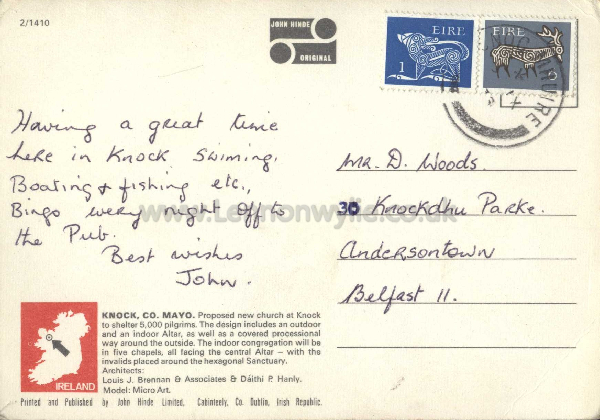 2/1410
JOHN HINDE
ORIGINAL
EIRE
1
EIRE
Having a great time
here in Knock Swiming,
Boating & fishing etc.,
Bingo every night Off to
the Pub.
Best wishes
John.
Mr. D. Woods.
30 Knockdhu Parke.
Andersontown
Belfast 11.
www.Lennonwylie.co.uk
KNOCK, CO. MAYO. Proposed new church at Knock
to shelter 5,000 pilgrims. The design includes an outdoor
and an indoor Altar, as well as a covered processional
way around the outside. The indoor congregation will be
in five chapels, all facing the central Altar – with the
invalids placed around the hexagonal Sanctuary.
Architects:
Louis J. Brennan & Associates & Dáithí P. Hanly.
Model: Micro Art.
IRELAND
Printed and Published by John Hinde Limited, Cabinteely, Co. Dublin, Irish Republic.